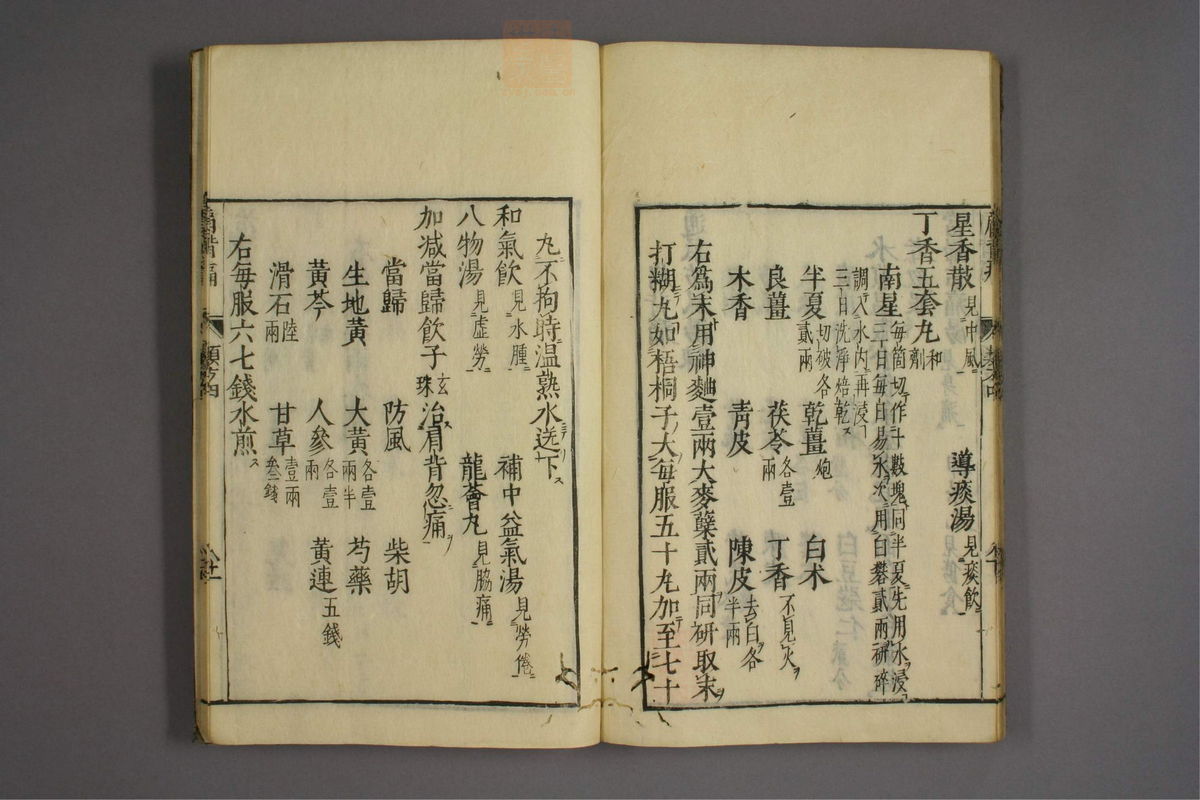 星香散見中風　導痰湯見痰飮
丁香五套丸和劑
南星每箇切作十數塊同半夏先用水浸三日每日易水次用白礬貳兩研碎調入水內再浸三日洗淨焙乾
半夏切破各貳兩　乾薑炮　白术
良薑　茯苓各壹兩　丁香不見火
木香　靑皮　陳皮去白各半兩
右爲末用神麯壹兩大麥糵貳兩同硏取末
打糊丸如梧桐子大每服五十丸加至七十
丸不拘時温熟水送下
和氣飮見水腫　補中益氣湯見勞倦
八物湯見虛勞　龍薈丸見脇痛
加减當歸飮子玄珠治肩背忽痛
當歸　防風　柴胡
生地黃　大黃各壹兩半　芍藥
黃芩　人參各壹兩　黃連五錢
滑石陸兩　甘草壹兩叁錢
右每服六七錢水煎
類方四